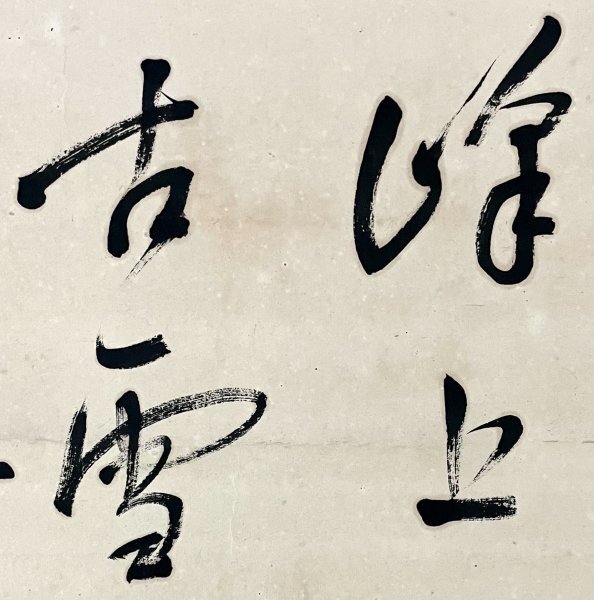 峰上
古雪